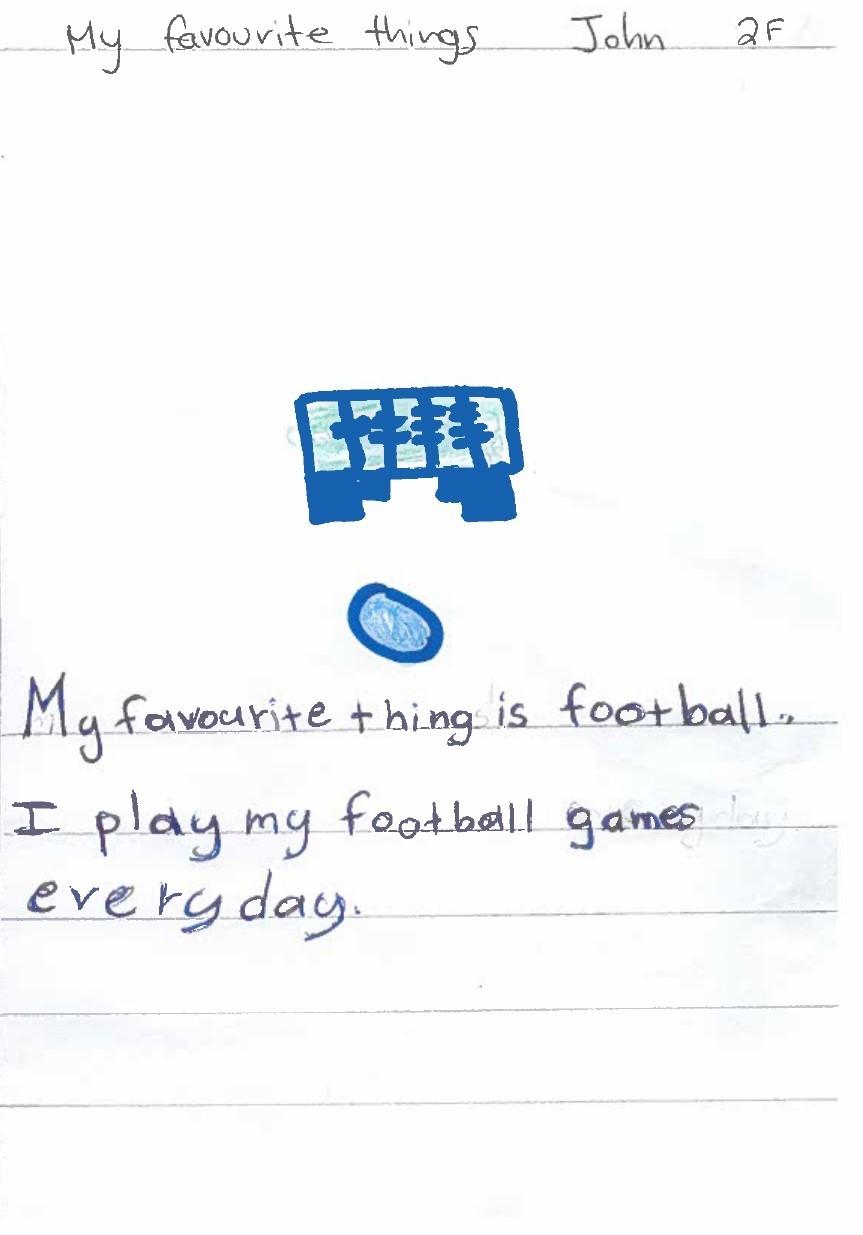 My favourite things John 2F
My favourite thing is football.
I play my football games
everyday.